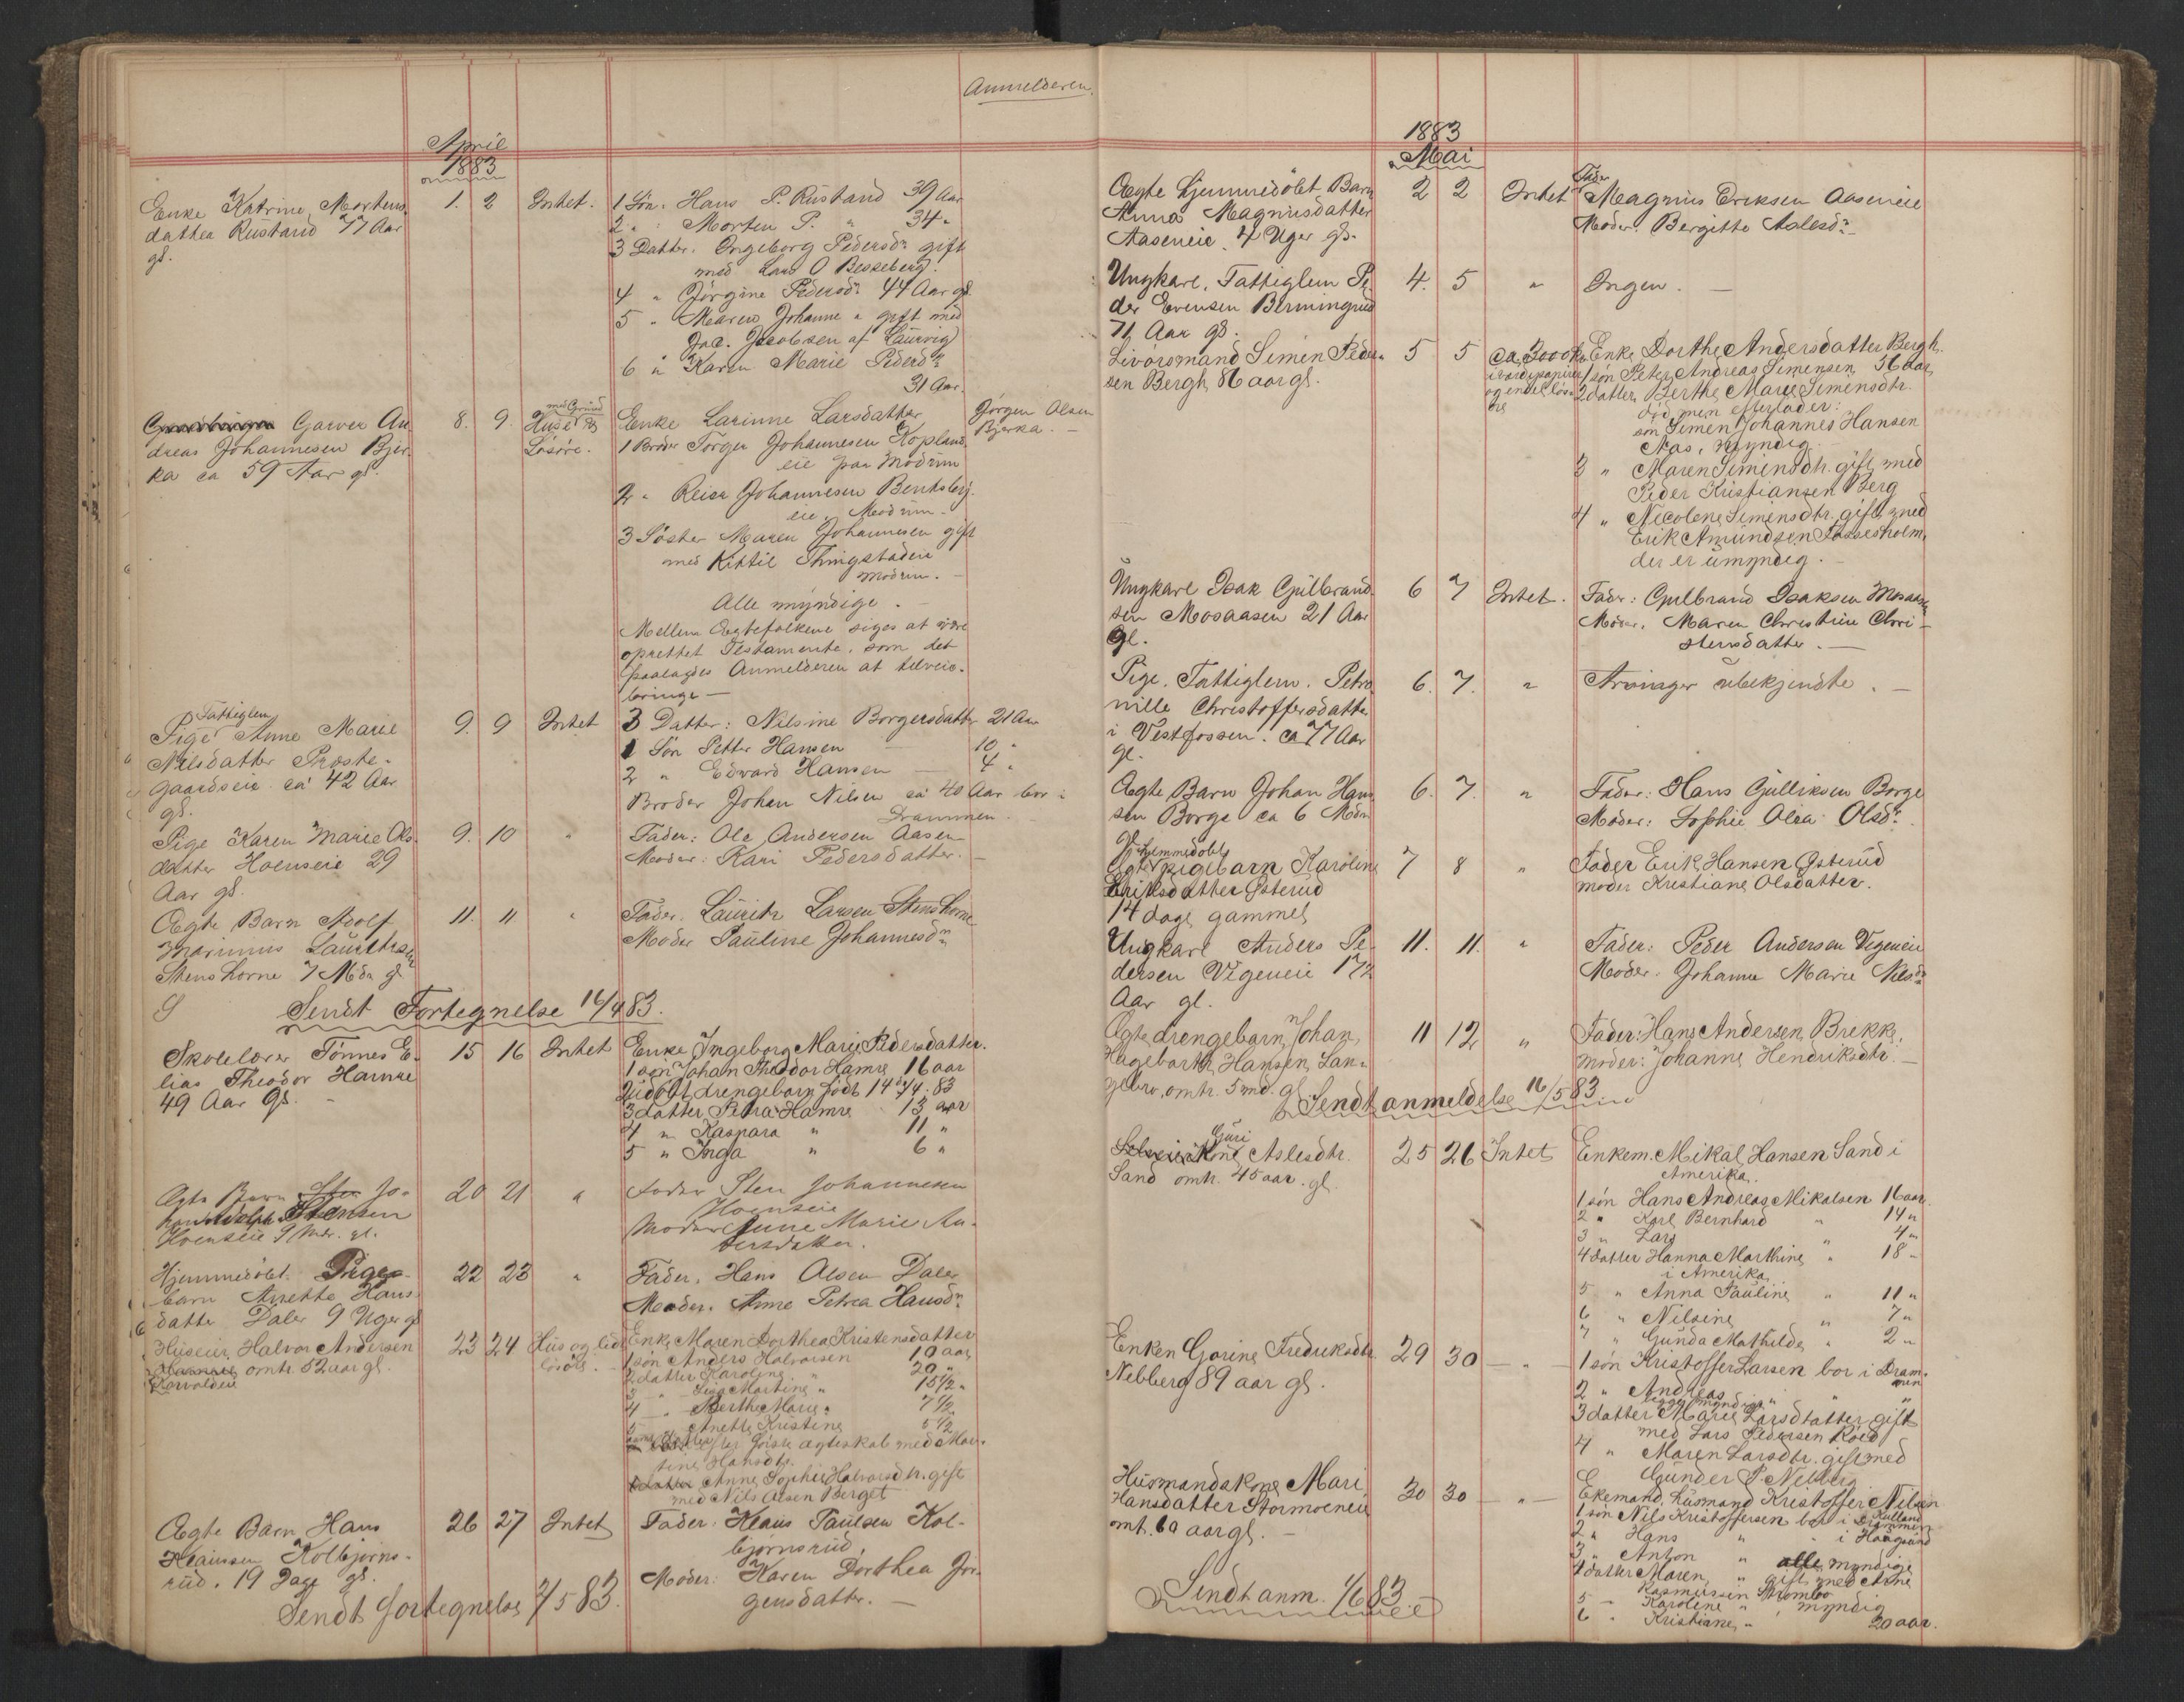 Anmelderen.
April
1883
Enke Katrine Mortens-
datter Rustand 77 Aar
gl.
1. 2 Intet.
1 Søn. Hans P. Rustand 39 Aar
2 " Morten P. " 34 "
3 Datter. Ingeborg Pedersdr gift
med Lars O Besseberg.
4 " Jørgine Pedersdr 44 Aar gl.
5 " Maren Johanne " gift med
Jac. Jacobsen af Laurvig
6 " Karen Marie Pedersdr
31 Aar.
Garver An-
dreas Johannesen Bjer-
ka ca 59 Aar gl.
8. 9. Huse med Grund og
Løsøre.
Enke Larinne Larsdatter
1 Broder Torger Johannesen Kopland
eie paa Modum
2 " Reier Johannesen Bentsberg-
eie, Modum -
3 Søster Maren Johannesen gift
med Kittil Thingstadeie
Modum. -
Alle myndige. -
Mellem Ægtefolkene siges at være
oprettet Testamente, som det
paalagdes Anmelderen at tilveie-
bringe -
Jørgen Olsen
Bjerka. -
Tattiglem
Pige Anne Marie
Nilsdatter Præste-
gaardseie ca 42 Aar
gl.
9. 9 Intet
3 Datter: Nilsine Borgersdatter 21 Aar
1 Søn Petter Hansen 10 "
2 " Edvard Hansen - 4 "
Broder Johan Nilsen ca 40 Aar bor i
Drammen.
Pige Karen Marie Ols-
datter Hoenseie 29
Aar gl.
9. 10 "
Fader: Ole Andersen Aasen
Moder: Kari Pedersdatter. -
Ægte Barn Adolf
Marinius Lauritsen
Stenshorne 7 Mdr gl
11. 11 "
Fader. Lauritz Larsen Stenshorne
Moder Pauline Johannesdr
Sendt Fortegnelse 16/4 83.
Skolelærer Tønnes E-
lias Theodor Hamre
49 Aar gl. -
15 16 Intet
Enke Ingeborg Marie Pedersdatter.
1 søn Johan Theodor Hamre 16 aar
2 udøbt drengebarn født 14/4. 83
3 datter Petra Hamre 13 aar
4 " Kaspara " 11 "
5 " Inga " 6 "
Ægte Barn Jo-
han Stensen
Hoenseie 9 Mdr. gl.
20 21 "
Fader Sten Johannesen
Hoenseie
Moder Anne Marie An-
dersdatter.
Hjemmedøbt Pige-
barn Anette Hans-
datter Daler 9 Uger gl
22 23 "
Fader. Hans Olsen Daler
Moder. Anne Petrea Hansdr
Huseier Halvor Andersen
omtr. 52 aar gl.
23 24 Hus og lidt
løsøre. -
Enke Maren Dorthea Kristensdatter
1 søn Anders Halvorsen 10 aar
2 datter Karoline " 20 "
3 " Lina Martine " 15½ "
4 " Berthe Marie " 7½
5 " Anette Kristine 5½
ægteskab med Mar-
tine Hansdtr.
Anne Sophie Halvorsdtr. gift
med Nils Olsen Berget
Ægte Barn Hans
Klausen Kolbjørns-
rud. 19 Dage gl.
26 27 Intet
Fader. Klaus Paulsen Kol-
bjørnsrud,
Moder: Karen Dorthea Jør-
gensdatter. -
Sendt fortegnelse 2/5 83.
1883
Mai
Ægte hjemmedøbt Barn
Anna Magnusdatter
Aaseneie. 4 Uger gl.
2 2 Intet
Fader Magnus Eriksen Aaseneie
Moder. Bergitte Aslesdr -
Ungkarl, Fattiglem Pe-
der Evensen Bermingrud
71 Aar gl.
4. 5 "
Ingen. -
Livørsmand Simen Peder-
sen Bergh 86 aar gl.
5 5 ca. 3000 Kr
i værdipapirer
og endel løsø-
re
Enke Dorthe Andersdatter Bergh.
1 søn Peter Andreas Simensen 56 aar
2 datter Berthe Marie Simensdtr.
død, men efterlader:
søn Simen Johannes Hansen
Aas, myndig. -
3 " Maren Simensdtr. gift med
Peder Kristiansen Berg
4 " Nicoline Simensdtr. gift med
Erik Amundsen Fossesholm,
der er umyndig. -
Ungkarl Isak Gulbrand-
sen Mosaasen 21 Aar
gl.
6 7 Intet.
Fader: Gulbrand Isaksen Mosaasen
Moder. Maren Christine Chri-
stensdatter. -
Pige. Fattiglem. Petro-
nille Christoffersdatter
i Vestfossen. ca 77 Aar
gl.
6. 7. "
Arvinger ubekjendte. -
Ægte Barn Johan Han-
sen Borge ca 6 Mdr
gl.
6. 7. "
Fader: Hans Gulliksen Borge
Moder: Sophie Olea Olsdr.
hjemmedøbt
Ægte pigebarn Karoline
Eriksdatter Østerud
14 dage gammel
7 8 "
Fader Erik Hansen Østerud
moder Kristiane Olsdatter.
Ungkarl Anders Pe-
dersen Vegeneie 17½
Aar gl.
11. 11. "
Fader: Peder Andersen Vegeneie
Moder. Johanne Marie Nilsdr
Ægte drengebarn Johan
Hagebarth Hansen Lan-
gebro, omtr. 5 md. gl
11 12 "
Fader: Hans Andersen Brekke.
moder: Johanne Hendriksdtr. -
Sendt anmeldelse 16/5 83.
Guri
Kone Aslesdtr.
Sand omtr. 45 aar. gl.
25 26 Intet
Enkem. Mikal Hansen Sand i
Amerika.
1 søn Hans Andreas Mikalsen 16 aar
2 " Karl Bernhard " 14 "
3 " Lars " 4 "
4 datter Hanna Marthine " 18 "
i Amerika
5 " Anna Pauline " 11 "
6 " Nilsine " 7 "
7 " Gunda Mathilde " 2 "
Enken Gorine Fredriksdtr.
Nebberg 89 aar gl.
29 30 - " -
1 søn Kristoffer Larsen bor i Dram-
men
2 " Andreas " "
begge myndige
3 datter Marie Larsdatter gift
med Lars Pedersen Røed
4 " Maren Larsdtr. gift med
Gunder P. Nebberg
Husmandskone Mari
Hansdatter Stormoeneie
omt. 60 aar gl. -
30 30 - " -
Ekemand, husmand Kristoffer Nilsen
1 søn Nils Kristoffersen bor i Drammen
2 " Hans " " i Haugsund
3 " Anton " alle myndige
4 datter Maren " gift med Arne
Rasmussen Strombo
5 " Karoline " , myndig
6 " Kristiane " 20 aar.
Sendt anm. 1/6 83.